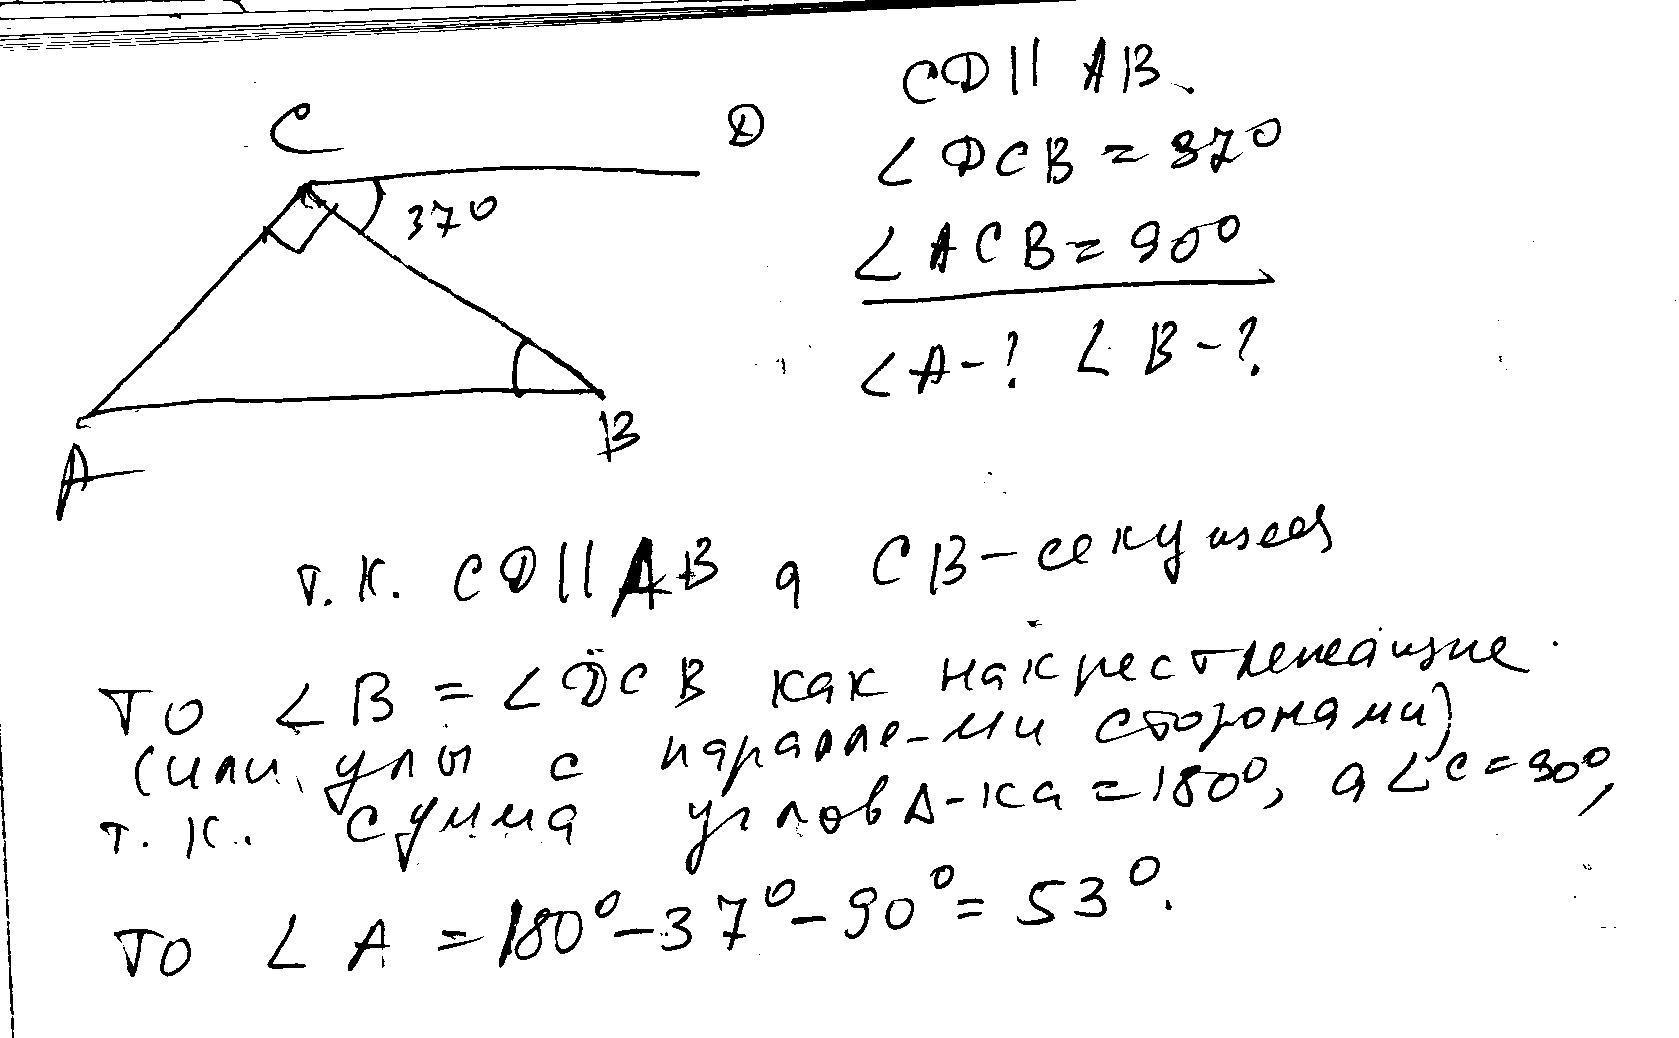 C
D
37°
A
B
CD || AB.
∠DCB = 37°
∠ACB = 90°
∠A - ? ∠B - ?
т.к. CD || AB а CB - секущая
то ∠B = ∠DCB как накрестлежащие
(или улы с паралле-ми сторонами)
т.к. сумма углов Δ-ка = 180°, а ∠C = 90°,
то ∠A = 180° - 37° - 90° = 53°.